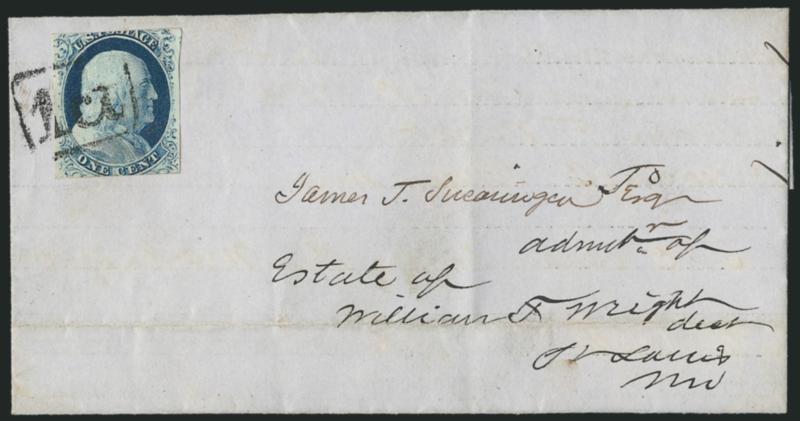 U.S. POSTAGE
1 ct
ONE CENT
James T. Esqr
admr of
Estate of
William F Wright
decd
St Louis
Mo